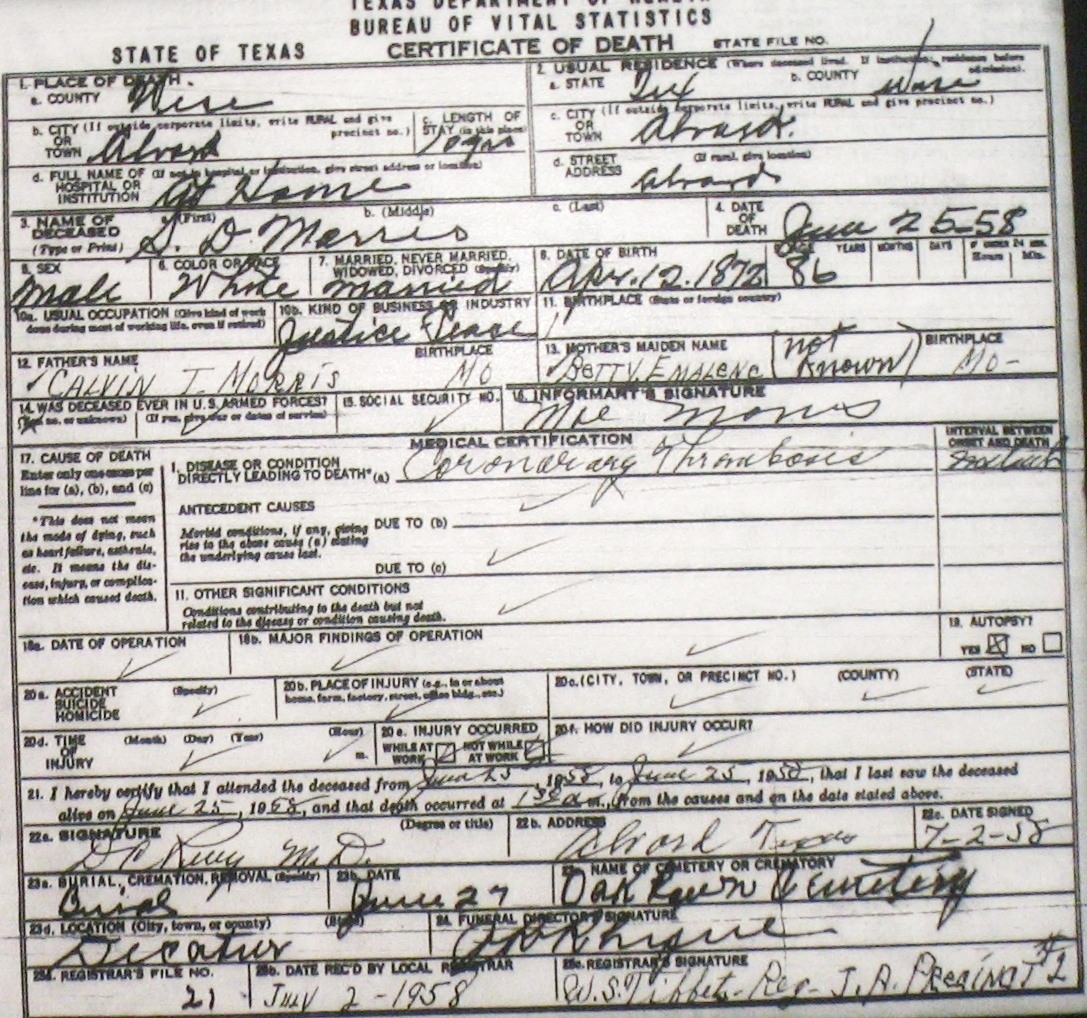 TEXAS DEPARTMENT OF HEALTH
BUREAU OF VITAL STATISTICS
STATE OF TEXAS CERTIFICATE OF DEATH STATE FILE NO.
1. PLACE OF DEATH
a. COUNTY Wise
2. USUAL RESIDENCE (Where deceased lived. If institution, residence before admission).
a. STATE Tex b. COUNTY Wise
b. CITY (If outside corporate limits, write RURAL and give precinct no.)
OR
TOWN Alvord
c. LENGTH OF
STAY (in this place)
c. CITY (If outside corporate limits, write RURAL and give precinct no.)
OR
TOWN Alvord.
d. FULL NAME OF (If not in hospital or institution, give street address or location)
HOSPITAL OR
INSTITUTION At Home
d. STREET (If rural, give location)
ADDRESS Alvord
3. NAME OF a. (First) b. (Middle) c. (Last)
DECEASED
(Type or Print) S. D. Morris
4. DATE
OF
DEATH June 25-58
5. SEX
Male
6. COLOR OR RACE
White
7. MARRIED, NEVER MARRIED,
WIDOWED, DIVORCED (Specify)
Married
8. DATE OF BIRTH
Apr. 12. 1872
AGE YEARS MONTHS DAYS IF UNDER 24 HRS.
Hours Min.
86
10a. USUAL OCCUPATION (Give kind of work
done during most of working life, even if retired)
10b. KIND OF BUSINESS OR INDUSTRY
Justice Peace
11. BIRTHPLACE (State or foreign country)
12. FATHER'S NAME BIRTHPLACE
CALVIN T. MORRIS MO
13. MOTHER'S MAIDEN NAME BIRTHPLACE
BETTY EMALENE (not Known) MO-
14. WAS DECEASED EVER IN U.S. ARMED FORCES?
(Yes, no, or unknown) (If yes, give war or dates of service)
15. SOCIAL SECURITY NO.
16. INFORMANT'S SIGNATURE
Moe Morris
MEDICAL CERTIFICATION
INTERVAL BETWEEN
ONSET AND DEATH
17. CAUSE OF DEATH
Enter only one cause per
line for (a), (b), and (c)
*This does not mean
the mode of dying, such
as heart failure, asthenia,
etc. It means the dis-
ease, injury, or complica-
tion which caused death.
I. DISEASE OR CONDITION
DIRECTLY LEADING TO DEATH* (a) Coronarary Thrombosis
ANTECEDENT CAUSES
Morbid conditions, if any, giving
rise to the above cause (a) stating
the underlying cause last.
DUE TO (b)
DUE TO (c)
11. OTHER SIGNIFICANT CONDITIONS
Conditions contributing to the death but not
related to the disease or condition causing death.
18a. DATE OF OPERATION
18b. MAJOR FINDINGS OF OPERATION
19. AUTOPSY?
YES NO
20a. ACCIDENT (Specify)
SUICIDE
HOMICIDE
20b. PLACE OF INJURY (e.g., in or about
home, farm, factory, street, office bldg., etc.)
20c. (CITY, TOWN, OR PRECINCT NO.) (COUNTY) (STATE)
20d. TIME (Month) (Day) (Year) (Hour)
OF
INJURY m.
20e. INJURY OCCURRED
WHILE AT NOT WHILE
WORK AT WORK
20f. HOW DID INJURY OCCUR?
21. I hereby certify that I attended the deceased from June 25, 1958, to June 25, 1958, that I last saw the deceased
alive on June 25, 1958, and that death occurred at m., from the causes and on the date stated above.
22a. SIGNATURE (Degree or title)
M.D.
22b. ADDRESS
Alvord Texas
22c. DATE SIGNED
7-2-58
23a. BURIAL, CREMATION, REMOVAL (Specify)
Burial
23b. DATE
June 27
NAME OF CEMETERY OR CREMATORY
Oak Lawn Cemetery
23d. LOCATION (City, town, or county) (State)
Decatur
24. FUNERAL DIRECTOR'S SIGNATURE
25a. REGISTRAR'S FILE NO.
21
25b. DATE REC'D BY LOCAL REGISTRAR
JULY 2-1958
25c. REGISTRAR'S SIGNATURE
W.S. Tibbet- Reg- J.A. PRECINCT #2